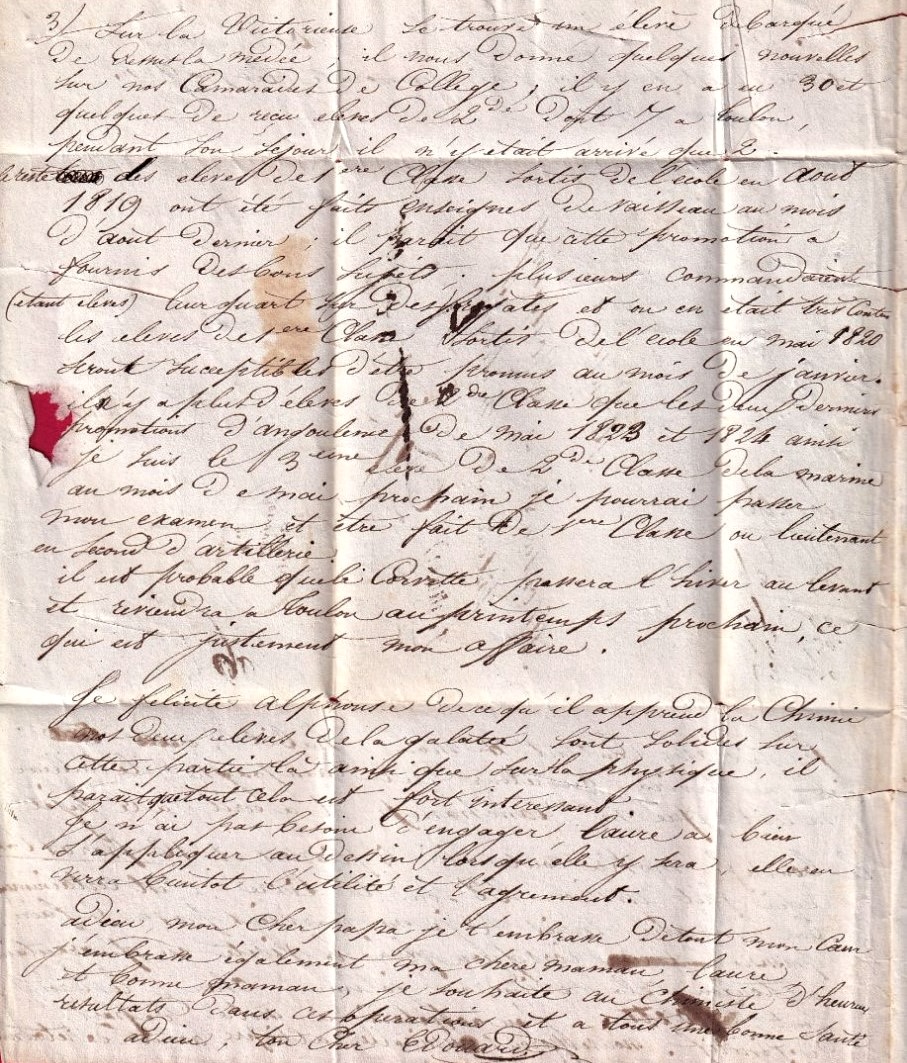 3/ Sur la Victorieuse se trouve un élève debarqué
de dessus la medée, il nous donne quelques nouvelles
sur nos Camarades de College, il y en a eu 30 et
quelques de reçu eleves de 2de dont 7 a toulon,
pendant son séjour il n'y etait arrivé que 2.
le reste des eleves de 1ere Classe sortis de l'ecole en aout
1819 ont été faits enseignes de vaisseau au mois
d'aout dernier; il parait que cette promotion a
fournis des bons sujets. plusieurs commandaient
(etant eleves) leur quart sur des frégates et on en était tres Content
les eleves de 1ere Classe sortis de l'école en mai 1820
seront susceptibles d'être promus au mois de janvier.
il n'y a plus d'eleves de 2de Classe que les deux derniers
promotions d'angouleme de mai 1823 et 1824 ainsi
je suis le 3eme élève de 2de Classe de la marine
au mois de mai prochain je pourrai passer
mon examen et être fait de 1ere Classe ou lieutenant
en second d'artillerie
il est probable que la Corvette passera l'hiver au levant
et reviendra a toulon au printemps prochain, ce
qui est justement mon affaire.
Je felicite alphonse de ce qu'il apprend la Chimie
nos deux eleves de la galatée sont solides sur
cette partie là ainsi que sur la physique, il
parait que tout cela est fort interessant.
Je n'ai pas besoin d'engager laure a bien
s'appliquer au dessin lorsqu'elle y sera, elle en
verra bientot l'utilité et l'agrement.
adieu mon Cher papa je t'embrasse de tout mon Coeur
j'embrasse également ma chere maman, laure
et bonne maman, je souhaite au Chimiste d'heureux
resultats dans ses operations et a tous une bonne Santé
adieu, ton Cher Edouard